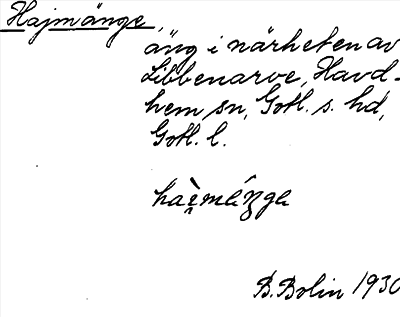 Hajmänge,
äng i närheten av
Libbenarve, Havd-
hem sn, Gotl. s. hd,
Gotl. l.
B. Bolin 1930